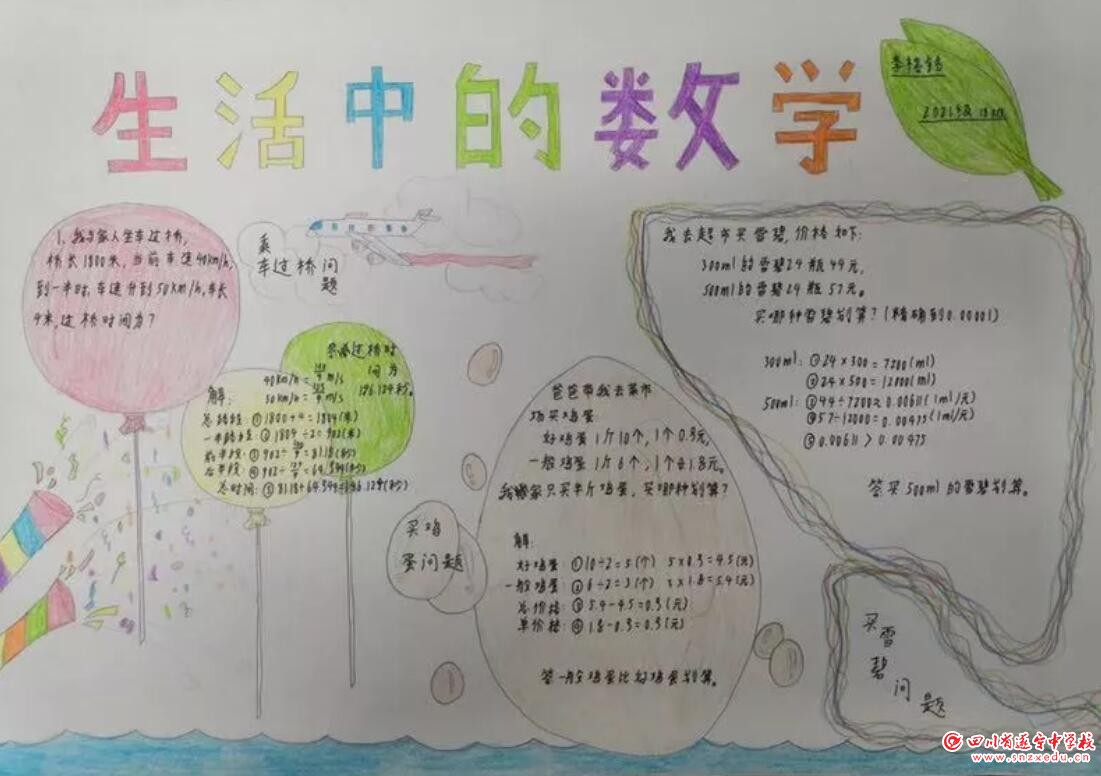 生活中的数学
2021级
1. 我与家人坐车过桥,
桥长1800米,当前车速40km/h,
到一半时,车速升到50km/h,车长
4米,过桥时间为?
乘
车过桥问
题
答:通过桥时
间为
146.124秒。
40km/h= m/s
解: 50km/h= m/s
总路程:①1800+4=1804(米)
一半路程:②1804÷2=902(米)
前半段:③902÷ =81.18(秒)
后半段:④902÷ =64.944(秒)
总时间:⑤81.18+64.944=146.124(秒)
买鸡
蛋问题
爸爸带我去菜市
场买鸡蛋:
好鸡蛋1斤10个,1个0.9元,
一般鸡蛋1斤6个,1个1.8元。
我家只买半斤鸡蛋,买哪种划算?
解:
好鸡蛋:①10÷2=5(个) 5×0.9=4.5(元)
一般鸡蛋:②6÷2=3(个) 3×1.8=5.4(元)
总价格:③5.4-4.5=0.9(元)
单价格:④1.8-0.9=0.9(元)
答一般鸡蛋比好鸡蛋划算。
我去超市买雪碧,价格如下:
300ml的雪碧24瓶44元,
500ml的雪碧24瓶57元。
买哪种雪碧划算?(精确到0.00001)
300ml:①24×300=7200(ml)
②24×500=12000(ml)
500ml:③44÷7200≈0.00611(1ml/元)
④57÷12000=0.00475(1ml/元)
⑤0.00611>0.00475
答买500ml的雪碧划算。
买雪
碧
问
题
四川省遂宁中学校
www.snzx.edu.cn